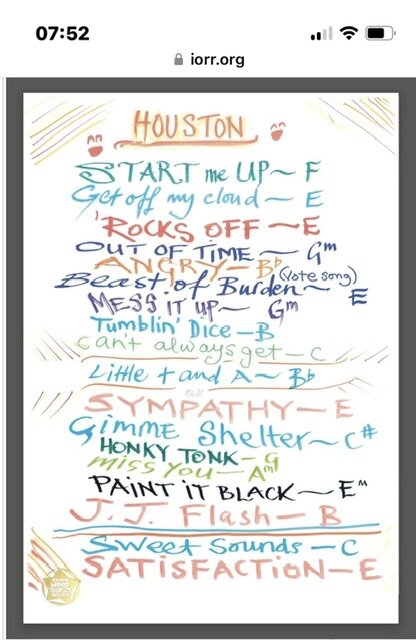 07:52
iorr.org
HOUSTON
START me UP ~ F
Get off my cloud — E
'ROCKS OFF ~ E
OUT OF TIME ~ Gm
ANGRY — Bb
(Vote song)
Beast of Burden ~ E
MESS IT UP ~ Gm
Tumblin' Dice — B
can't always get — C
Little t and A ~ Bb
SYMPATHY — E
GIMME Shelter ~ C#
HONKY TONK — G
MISS YOU — Am
PAINT IT BLACK ~ Em
J.J. Flash — B
Sweet Sounds — C
SATISFACTION — E